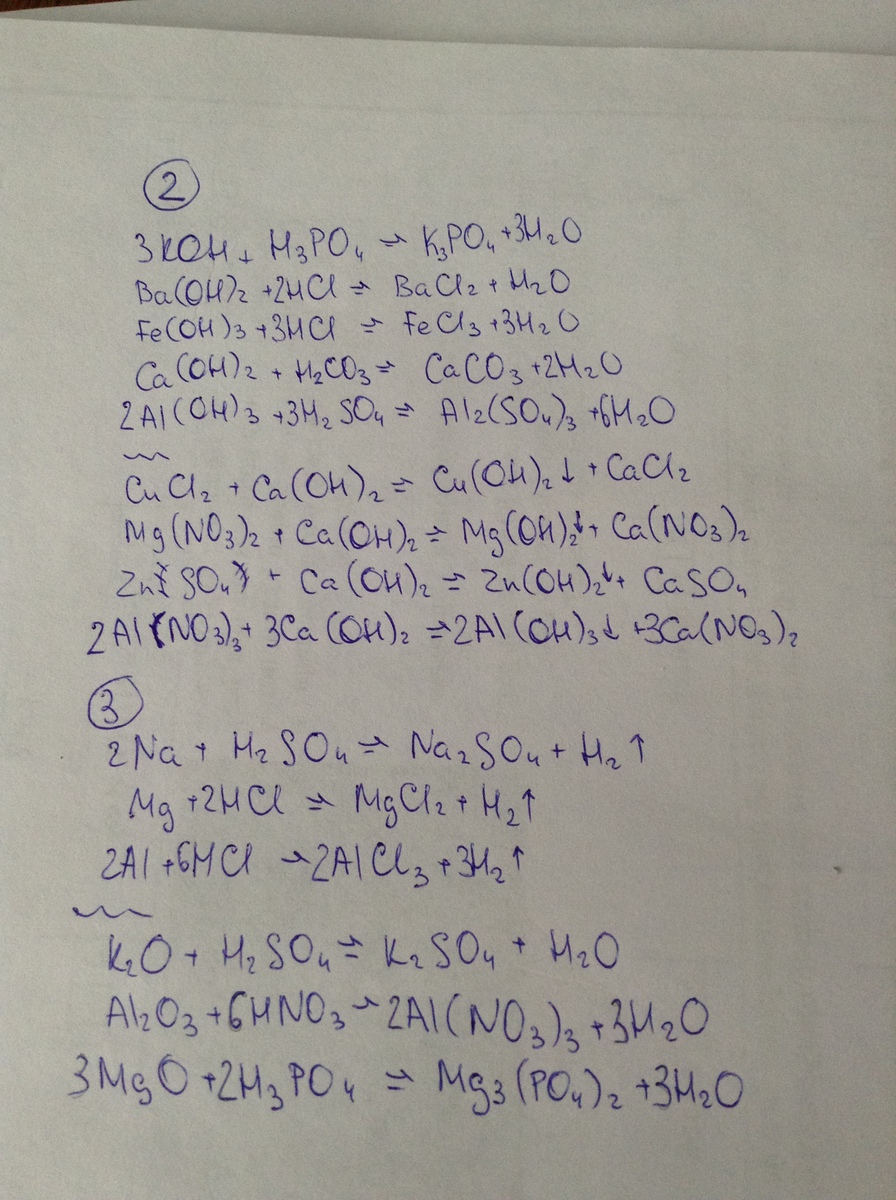 ②
3KOH + H₃PO₄ → K₃PO₄ + 3H₂O
Ba(OH)₂ + 2HCl → BaCl₂ + H₂O
Fe(OH)₃ + 3HCl → FeCl₃ + 3H₂O
Ca(OH)₂ + H₂CO₃ → CaCO₃ + 2H₂O
2Al(OH)₃ + 3H₂SO₄ → Al₂(SO₄)₃ + 6H₂O
CuCl₂ + Ca(OH)₂ → Cu(OH)₂↓ + CaCl₂
Mg(NO₃)₂ + Ca(OH)₂ → Mg(OH)₂↓ + Ca(NO₃)₂
ZnSO₄ + Ca(OH)₂ → Zn(OH)₂↓ + CaSO₄
2Al(NO₃)₃ + 3Ca(OH)₂ → 2Al(OH)₃↓ + 3Ca(NO₃)₂
③
2Na + H₂SO₄ → Na₂SO₄ + H₂↑
Mg + 2HCl → MgCl₂ + H₂↑
2Al + 6HCl → 2AlCl₃ + 3H₂↑
K₂O + H₂SO₄ → K₂SO₄ + H₂O
Al₂O₃ + 6HNO₃ → 2Al(NO₃)₃ + 3H₂O
3MgO + 2H₃PO₄ → Mg₃(PO₄)₂ + 3H₂O